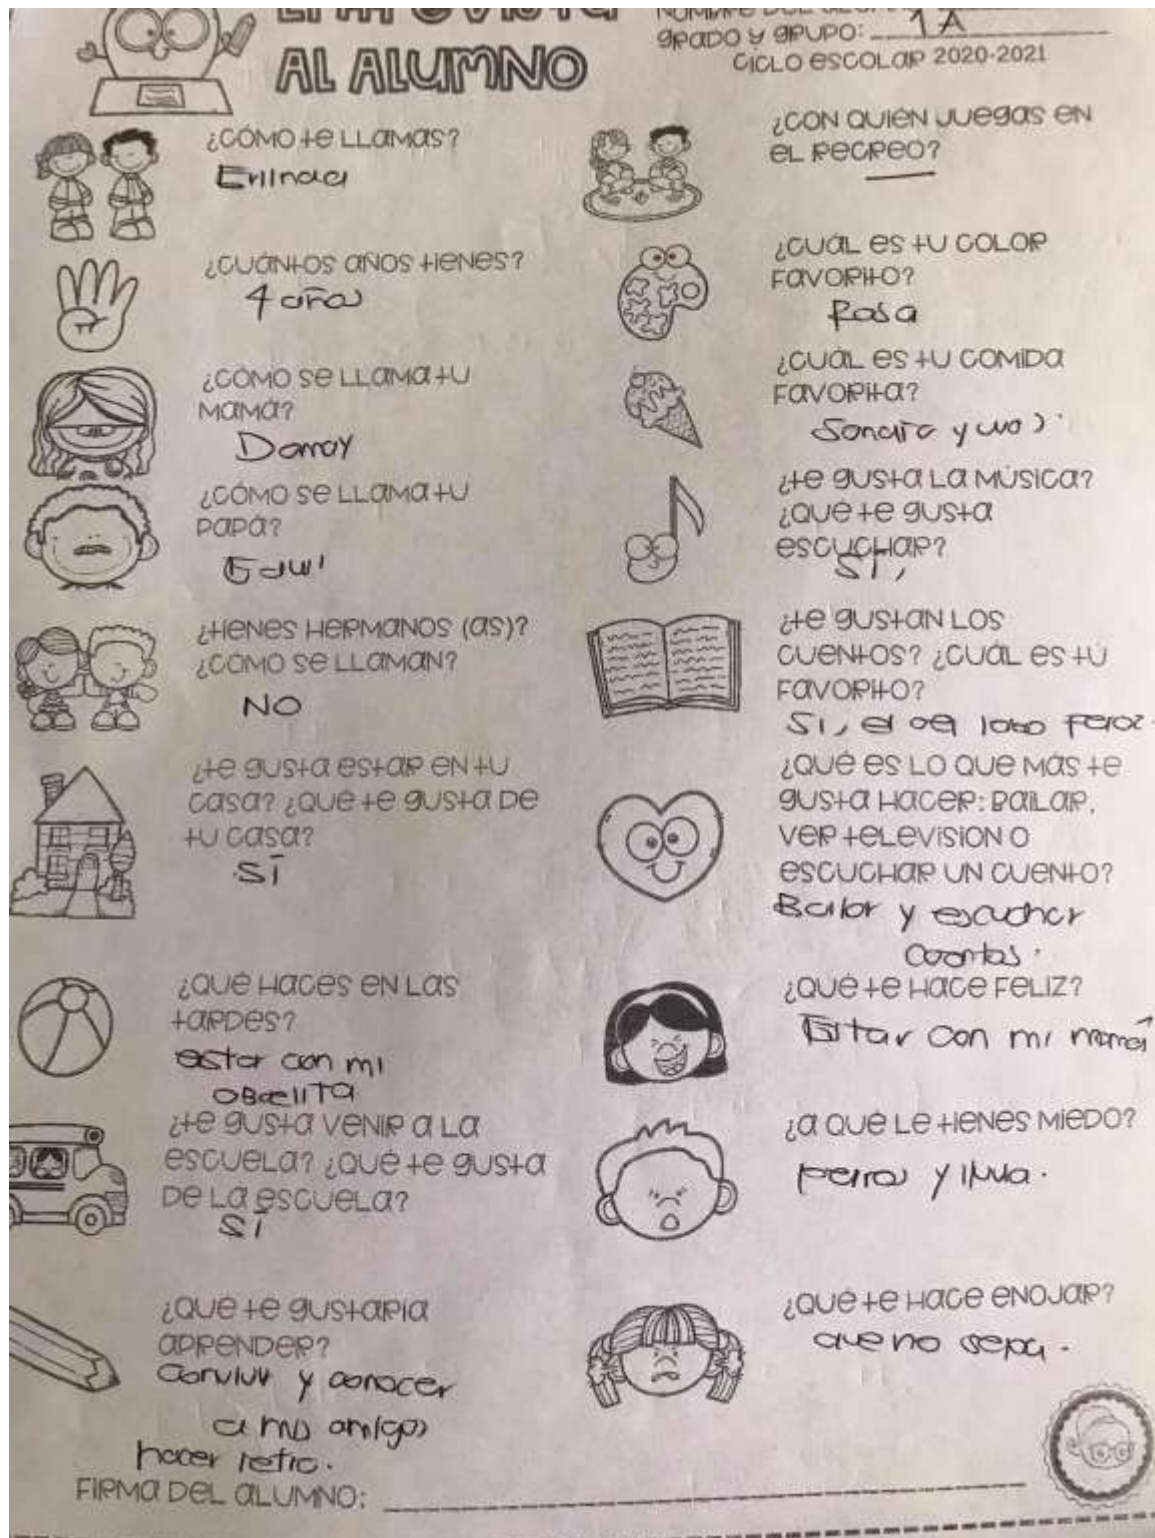 AL ALUMNO
GRADO Y GRUPO: 1A
CICLO ESCOLAR 2020-2021
¿CÓMO TE LLAMAS?
¿CUÁNTOS AÑOS TIENES?
4 años
¿CÓMO SE LLAMA TU
MAMÁ?
¿CÓMO SE LLAMA TU
PAPÁ?
¿TIENES HERMANOS (AS)?
¿CÓMO SE LLAMAN?
NO
¿TE GUSTA ESTAR EN TU
CASA? ¿QUÉ TE GUSTA DE
TU CASA?
SÍ
¿QUÉ HACES EN LAS
TARDES?
estar con mi
¿TE GUSTA VENIR A LA
ESCUELA? ¿QUÉ TE GUSTA
DE LA ESCUELA?
SÍ
¿QUÉ TE GUSTARÍA
APRENDER?
convivir y conocer
a mis amigos
hacer
FIRMA DEL ALUMNO:
¿CON QUIÉN JUEGAS EN
EL RECREO?
¿CUÁL ES TU COLOR
FAVORITO?
Rosa
¿CUÁL ES TU COMIDA
FAVORITA?
Sandía y
¿TE GUSTA LA MÚSICA?
¿QUÉ TE GUSTA
ESCUCHAR?
SÍ,
¿TE GUSTAN LOS
CUENTOS? ¿CUÁL ES TÚ
FAVORITO?
SI, el del lobo feroz
¿QUÉ ES LO QUE MÁS TE
GUSTA HACER: BAILAR,
VER TELEVISION O
ESCUCHAR UN CUENTO?
Bailar y escuchar
cuentos.
¿QUÉ TE HACE FELIZ?
Estar con mi mamá
¿A QUÉ LE TIENES MIEDO?
perros y lluvia.
¿QUÉ TE HACE ENOJAR?
que no sepa.